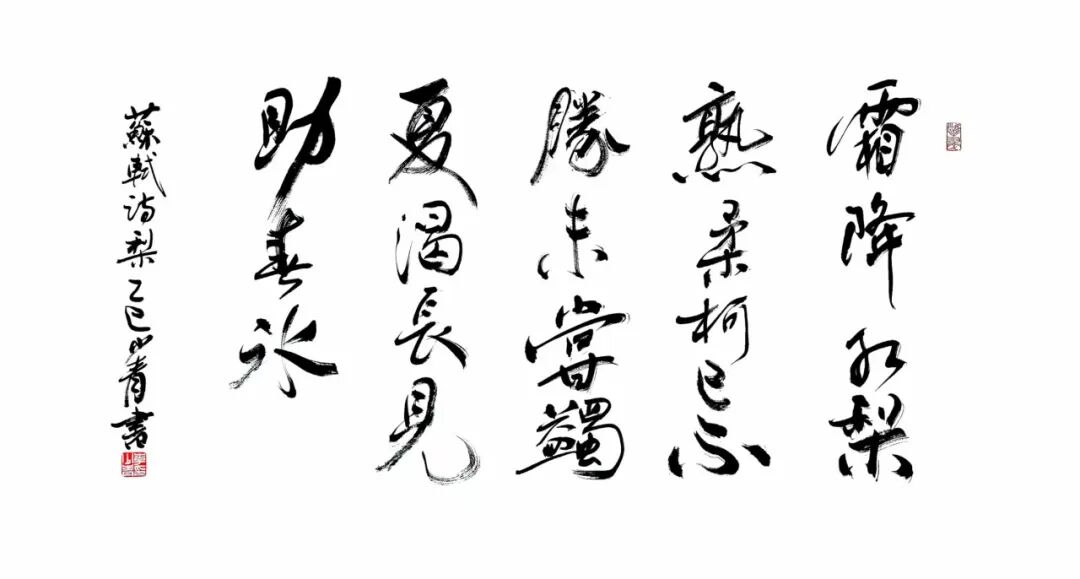 霜降红梨
熟柔柯已不
勝未甞蠲
夏渴長見
助春冰
蘇軾诗梨乙巳青書